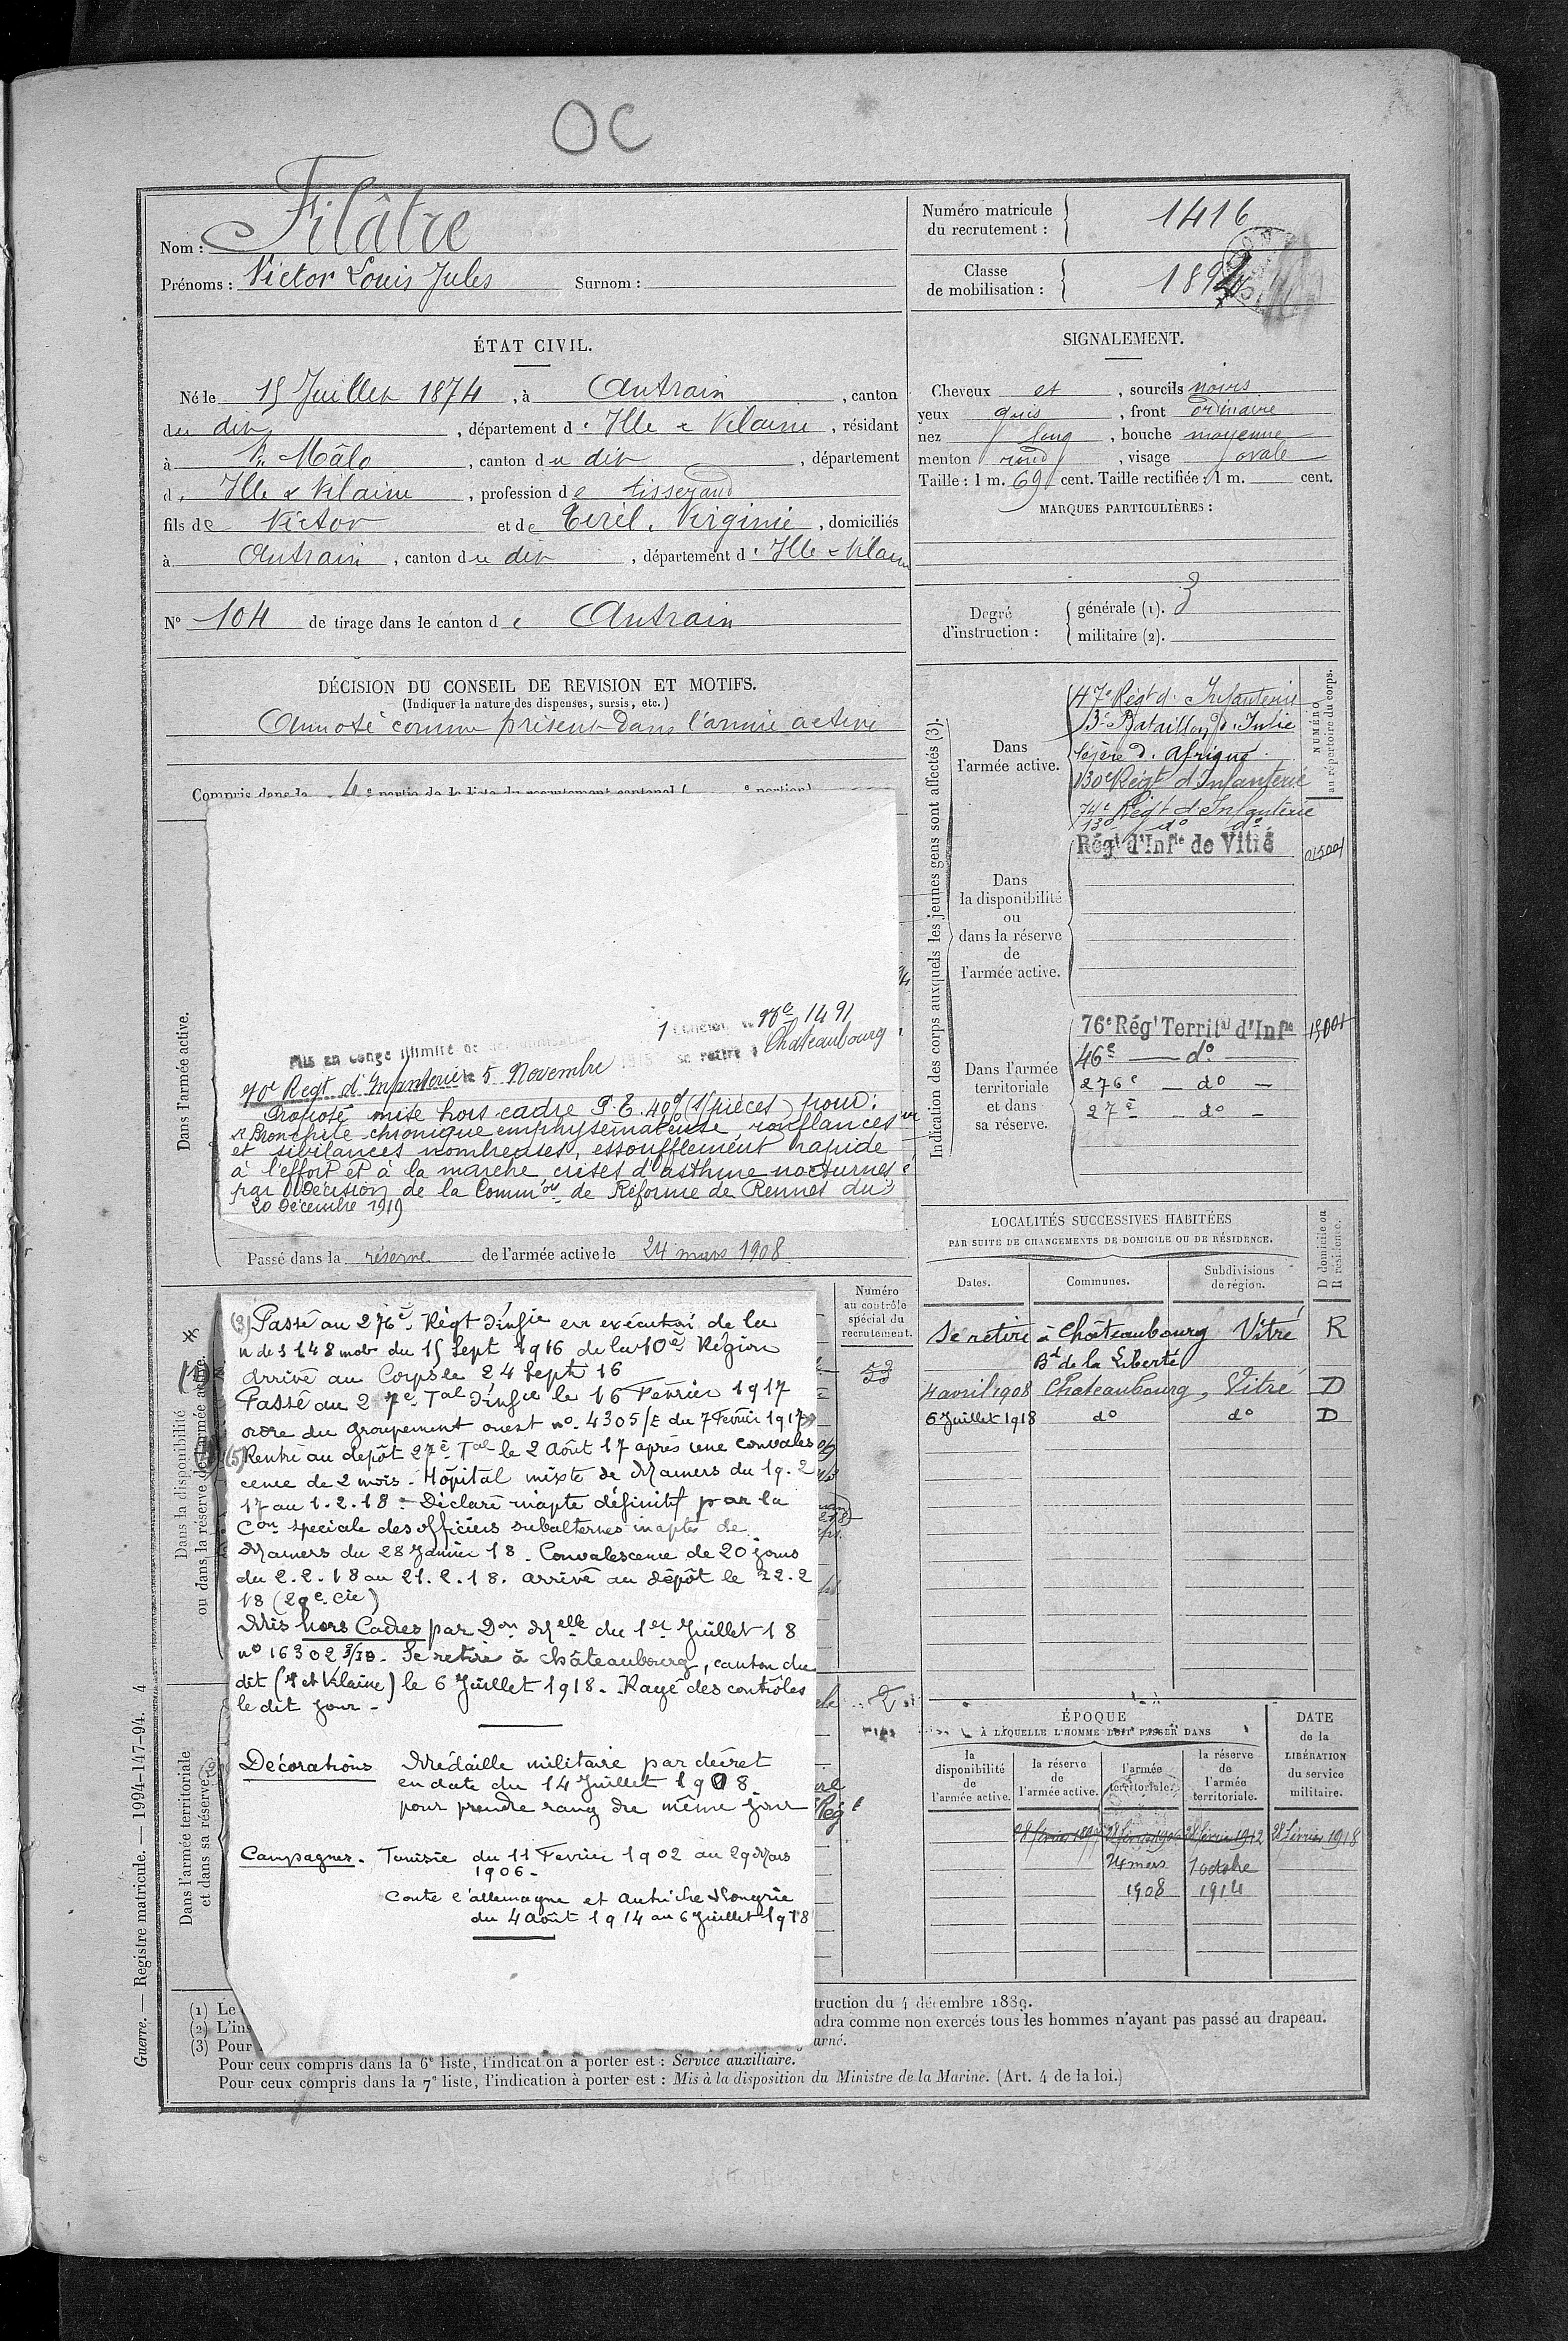 OC
Nom : Filâtre
Prénoms : Victor Louis Jules Surnom :
Numéro matricule du recrutement : 1416
Classe de mobilisation : 189
ÉTAT CIVIL.
Né le 15 Juillet 1874, à Antrain, canton
du dit, département d'Ille & Vilaine, résidant
à St Mâlo, canton du dit, département
d' Ille & Vilaine, profession de tisserand
fils de Victor et de Tirel, Virginie, domiciliés
à Antrain, canton du dit, département d'Ille & Vilaine
No 104 de tirage dans le canton de Antrain
SIGNALEMENT.
Cheveux et, sourcils noirs
yeux gris, front ordinaire
nez long, bouche moyenne
menton rond, visage ovale
Taille : 1 m. 69 cent. Taille rectifiée : 1 m. cent.
MARQUES PARTICULIÈRES :
Degré d'instruction :
générale (1). 3
militaire (2).
DÉCISION DU CONSEIL DE REVISION ET MOTIFS.
(Indiquer la nature des dispenses, sursis, etc.)
Annoté comme présent dans l'armée active
Compris dans la 4e partie de la liste du recrutement cantonal ( e portion)
Dans l'armée active.
98e 1491
Mis en congé illimité de
se retire à Chateaubourg
70e Regt d'Infanterie le 5 Novembre
Proposé mise hors cadre P.E. 40% (1/pièces) pour :
Bronchite chronique emphysémateuse, ronflances
et sibilances nombreuses, essoufflement rapide
à l'effort et à la marche crises d'asthme nocturnes
par Décision de la Common de Réforme de Rennes du
20 Décembre 1919
Passé dans la réserve de l'armée active le 24 mars 1908
Indication des corps auxquels les jeunes gens sont affectés (3).
NUMÉRO au répertoire du corps.
Dans l'armée active.
47e Régt d'Infanterie
3e Bataillon d'Infie
légère d'Afrique
130e Régt d'Infanterie
74e Régt d'Infanterie
130 do do
Dans la disponibilité ou dans la réserve de l'armée active.
Régt d'Infie de Vitré
Dans l'armée territoriale et dans sa réserve.
76e Régt Territal d'Infie
46e — do —
276e — do —
27e — do —
LOCALITÉS SUCCESSIVES HABITÉES
PAR SUITE DE CHANGEMENTS DE DOMICILE OU DE RÉSIDENCE.
Dates. Communes. Subdivisions de région. D domicile ou R résidence.
Se retire à Châteaubourg Vitré R
Bd de la Liberté
4 avril 1908 Chateaubourg, Vitré D
6 Juillet 1918 do do D
Numéro au contrôle spécial du recrutement.
Dans la disponibilité ou dans la réserve de l'armée active.
(3) Passé au 276e Régt d'infie en exécution de la
n de s 148 mob du 15 Sept 1916 de la 10e Région
arrivé au Corps le 24 Sept 16
Passé au 27e Tal d'infie le 16 Février 1917
ordre du Groupement ouest no 4305/E du 7 Février 1917
(5) Rentré au dépôt 27e Tal le 2 Août 17 après une convales
cence de 2 mois. Hôpital mixte de Mamers du 19.2
17 au 1.2.18 - Déclaré inapte définitif par la
Con speciale des officiers subalternes inaptes de
Mamers du 28 Janvier 18. Convalescence de 20 jours
du 2.2.18 au 21.2.18. arrivé au dépôt le 22.2
18 (29e Cie)
Mis hors Cadres par Don Melle du 1er Juillet 18
no 16302. Se retire à châteaubourg, canton du
dit (I et Vilaine) le 6 Juillet 1918. Rayé des contrôles
le dit jour -
Décorations Médaille militaire par décret
en date du 14 Juillet 1908
pour prendre rang du même jour
Campagnes. Tunisie du 11 Février 1902 au 29 Mars
1906 -
Conte l'allemagne et Autriche Hongrie
du 4 Août 1914 au 6 Juillet 1918
Dans l'armée territoriale et dans sa réserve.
ÉPOQUE
À LAQUELLE L'HOMME DOIT PASSER DANS
la disponibilité de l'armée active.
la réserve de l'armée active.
l'armée territoriale.
la réserve de l'armée territoriale.
DATE de la LIBÉRATION du service militaire.
28 février 1906 28 février 1912 28 février 1918
24 mars 1 octobre
1908 1914
(1) Le truction du 4 décembre 1889.
(2) L'ins ndra comme non exercés tous les hommes n'ayant pas passé au drapeau.
(3) Pour
Pour ceux compris dans la 6e liste, l'indication à porter est : Service auxiliaire.
Pour ceux compris dans la 7e liste, l'indication à porter est : Mis à la disposition du Ministre de la Marine. (Art. 4 de la loi.)
Guerre. — Registre matricule. — 1994-147-94. 4